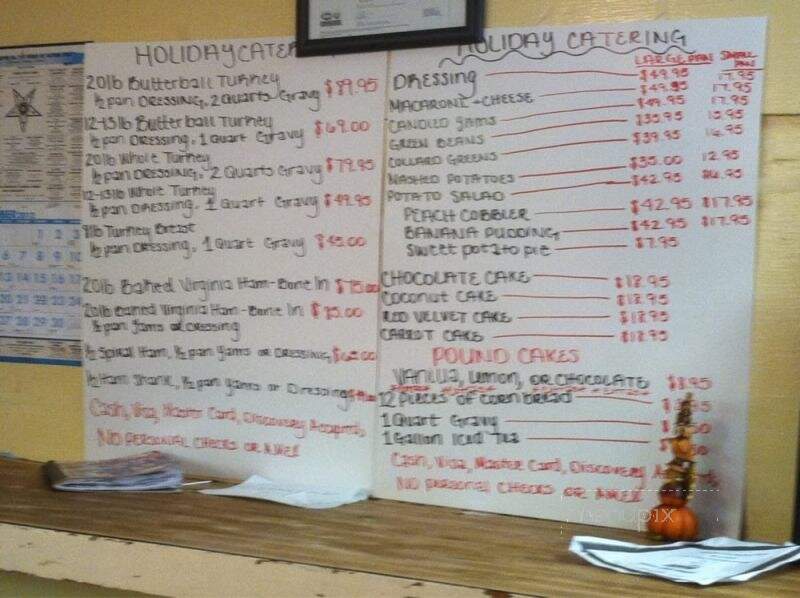 HOLIDAY CATE
20lb Butterball Turkey
½ pan DRESSING, 2 Quarts Gravy $89.95
12-15lb Butterball Turkey
½ pan DRESSING, 1 Quart Gravy $69.00
20lb Whole Turkey
½ pan DRESSING, 2 Quarts Gravy $79.95
12-15lb Whole Turkey
½ pan DRESSING, 1 Quart Gravy $49.95
Turkey Breast
½ pan DRESSING, 1 Quart Gravy $45.00
20lb Baked Virginia Ham-Bone In $75.00
20lb Baked Virginia Ham-Bone In $75.00
½ pan Yams or DRESSING
½ Spiral Ham, ½ pan Yams or DRESSING
½ Ham Shank, ½ pan Yams or Dressing
Cash, Visa, Master Card, Discovery Accepted,
NO PERSONAL CHECKS OR AMEX
HOLIDAY CATERING
LARGE PAN SMALL PAN
DRESSING $49.95 17.95
MACARONI + CHEESE $49.95 17.95
CANDIED YAMS $49.95 17.95
GREEN BEANS $39.95
COLLARD GREENS $39.95
MASHED POTATOES $35.00 12.95
POTATO SALAD $42.95
PEACH COBBLER $42.95 $17.95
BANANA PUDDING $42.95 $17.95
Sweet potato pie $7.95
CHOCOLATE CAKE $18.95
Coconut CAKE $18.95
RED VELVET CAKE $18.95
CARROT CAKE $18.95
POUND CAKES
VANILLA, Lemon, OR CHOCOLATE
12 Pieces of corn bread
1 Quart Gravy
1 Gallon Iced Tea
Cash, Visa, Master Card, Discovery
NO PERSONAL CHECKS OR AMEX